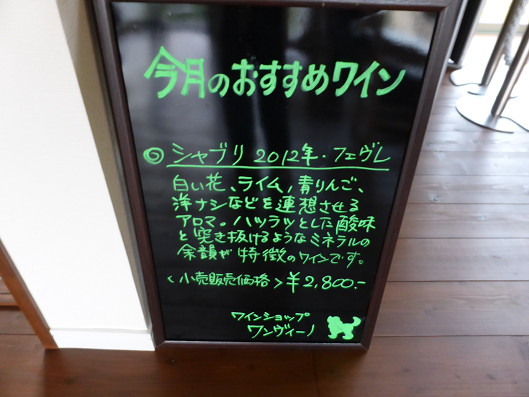 今月のおすすめワイン
◎ シャブリ 2012年・フェヴレ
白い花、ライム、青りんご、
洋ナシなどを連想させる
アロマ。ハツラツとした酸味
と突き抜けるようなミネラルの
余韻が特徴のワインです。
<小売販売価格>¥2,800.-
ワインショップ
ワンヴィーノ